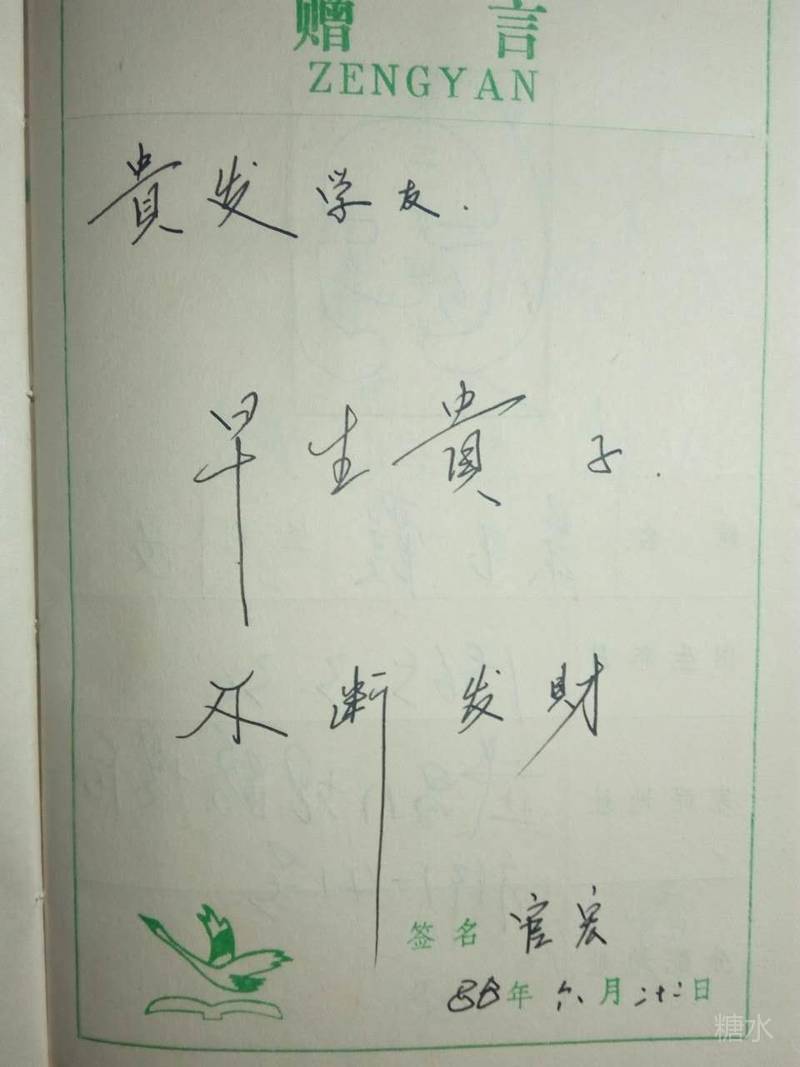 赠言
ZENGYAN
貴发学友.
早生貴子.
不断发财
签名 官宏
88年六月二十二日
糖水